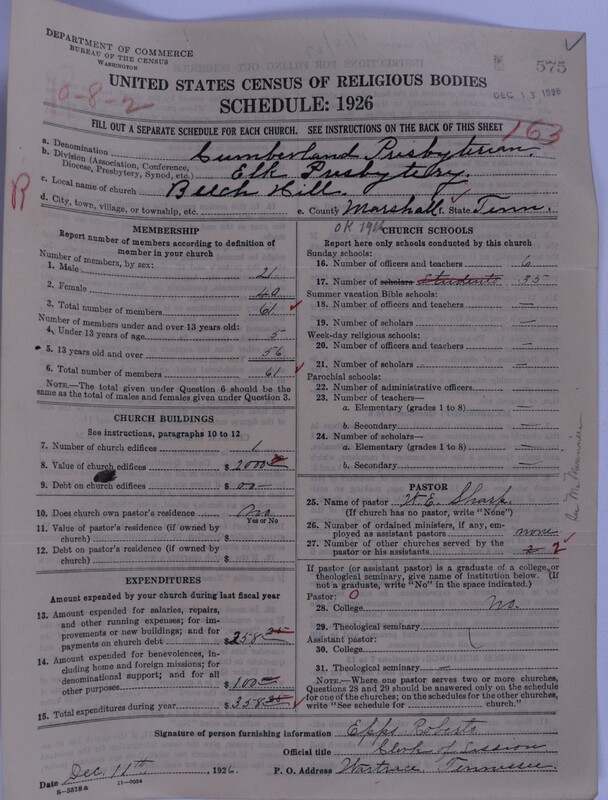 DEPARTMENT OF COMMERCE
BUREAU OF THE CENSUS
WASHINGTON
575
DEC 13 1926
UNITED STATES CENSUS OF RELIGIOUS BODIES
0-8-2
SCHEDULE: 1926
FILL OUT A SEPARATE SCHEDULE FOR EACH CHURCH. SEE INSTRUCTIONS ON THE BACK OF THIS SHEET
163
a. Denomination Cumberland Presbyterian.
b. Division (Association, Conference, Diocese, Presbytery, Synod, etc.) Elk Presbytery.
R
c. Local name of church Beech Hill.
d. City, town, village, or township, etc. e. County Marshall f. State Tenn.
OK 1926
MEMBERSHIP
Report number of members according to definition of
member in your church
Number of members, by sex:
1. Male 21
2. Female 40
3. Total number of members 61
Number of members under and over 13 years old:
4. Under 13 years of age 5
5. 13 years old and over 56
6. Total number of members 61
NOTE.—The total given under Question 6 should be the
same as the total of males and females given under Question 3.
CHURCH BUILDINGS
See instructions, paragraphs 10 to 12
7. Number of church edifices 1
8. Value of church edifices $ 2000
9. Debt on church edifices $ 00
10. Does church own pastor's residence? No
Yes or No
11. Value of pastor's residence (if owned by
church) $
12. Debt on pastor's residence (if owned by
church) $
EXPENDITURES
Amount expended by your church during last fiscal year
13. Amount expended for salaries, repairs,
and other running expenses; for im-
provements or new buildings; and for
payments on church debt $ 258
14. Amount expended for benevolences, in-
cluding home and foreign missions; for
denominational support; and for all
other purposes $ 100
15. Total expenditures during year $ 358
CHURCH SCHOOLS
Report here only schools conducted by this church
Sunday schools:
16. Number of officers and teachers 6
17. Number of scholars Students 35
Summer vacation Bible schools:
18. Number of officers and teachers —
19. Number of scholars —
Week-day religious schools:
20. Number of officers and teachers —
21. Number of scholars —
Parochial schools:
22. Number of administrative officers —
23. Number of teachers—
a. Elementary (grades 1 to 8) —
b. Secondary —
24. Number of scholars—
a. Elementary (grades 1 to 8) —
b. Secondary —
PASTOR
25. Name of pastor W. E. Sharp
(If church has no pastor, write "None")
26. Number of ordained ministers, if any, em-
ployed as assistant pastors none
27. Number of other churches served by the
pastor or his assistants 2 2
If pastor (or assistant pastor) is a graduate of a college or
theological seminary, give name of institution below. (If
not a graduate, write "No" in the space indicated.)
Pastor: 0
28. College No.
29. Theological seminary
Assistant pastor:
30. College
31. Theological seminary —
NOTE.—Where one pastor serves two or more churches,
Questions 28 and 29 should be answered only on the schedule
for one of the churches; on the schedules for the other churches,
write "See schedule for church."
Signature of person furnishing information Epps Roberts
Official title Clerk of Session
Date Dec. 11th, 1926. P. O. Address Wartrace, Tennessee.
8-5318a 11-9034